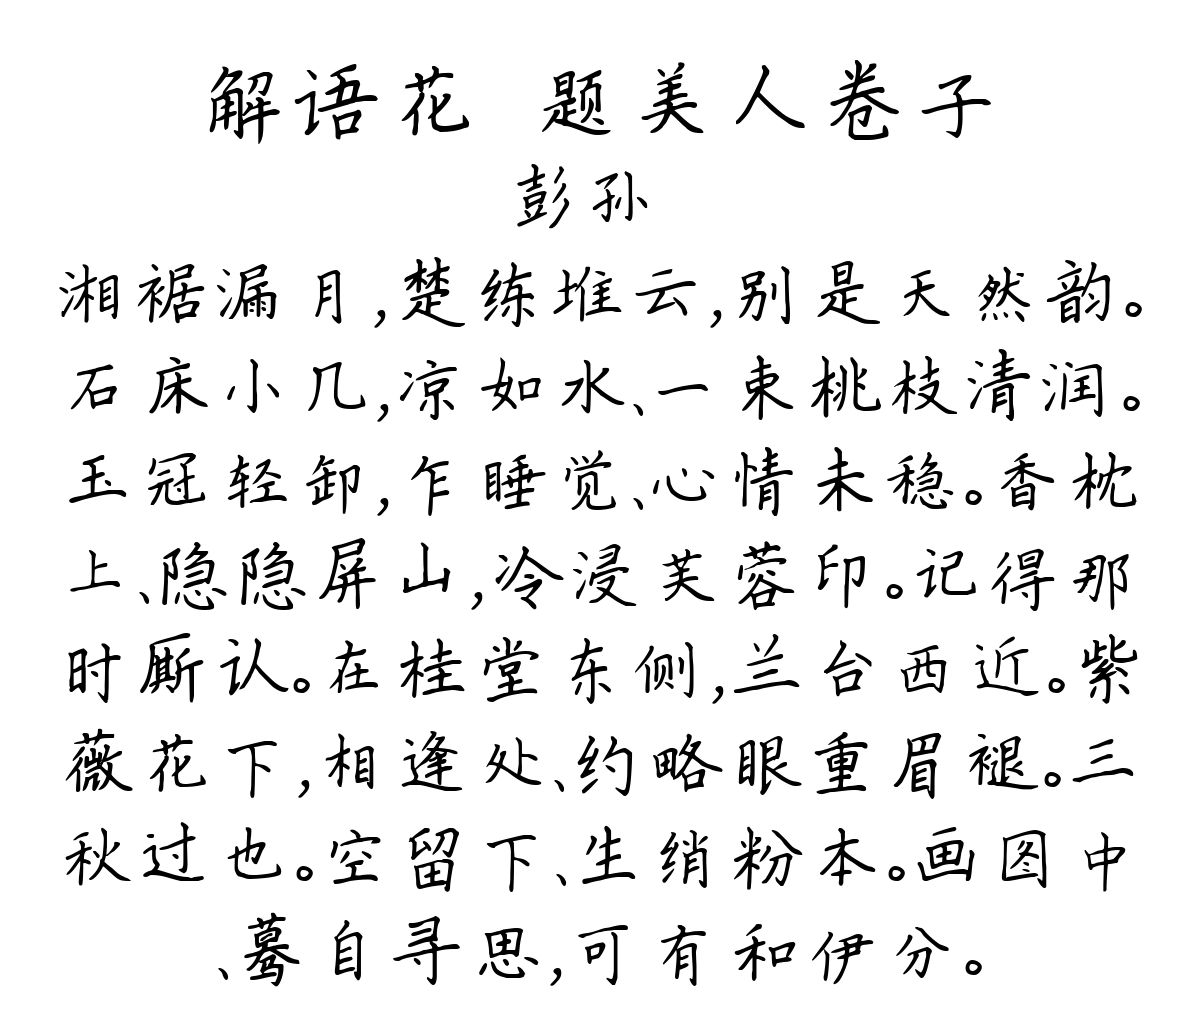 解语花 题美人卷子
彭孙
湘裾漏月,楚练堆云,别是天然韵。
石床小几,凉如水、一束桃枝清润。
玉冠轻卸,乍睡觉、心情未稳。香枕
上、隐隐屏山,冷浸芙蓉印。记得那
时厮认。在桂堂东侧,兰台西近。紫
薇花下,相逢处、约略眼重眉褪。三
秋过也。空留下、生绡粉本。画图中
、蓦自寻思,可有和伊分。